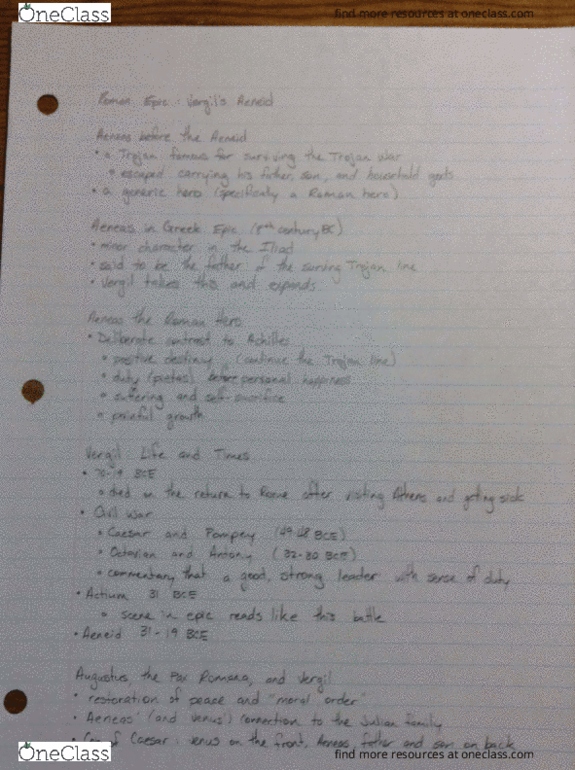 OneClass
find more resources at oneclass.com
Roman Epic: Vergil's Aeneid
Aeneas before the Aeneid
• a Trojan famous for surviving the Trojan War
• escaped carrying his father, son, and household gods
• a generic hero (specifically a Roman hero)
Aeneas in Greek Epic (8th century BC)
• minor character in the Iliad
• said to be the father of the surviving Trojan line
• Vergil takes this and expands
Aeneas the Roman Hero
• Deliberate contrast to Achilles
• positive destiny (continue the Trojan line)
• duty (pietas) before personal happiness
• suffering and self-sacrifice
• painful growth
Vergil: Life and Times
• 70-19 BCE
• died on the return to Rome after visiting Athens and getting sick
• Civil War
• Caesar and Pompey (49-48 BCE)
• Octavian and Antony (32-30 BCE)
• commentary that a good, strong leader with sense of duty
• Actium 31 BCE
• scene in epic reads like this battle
• Aeneid 31-19 BCE
Augustus, the Pax Romana, and Vergil
• restoration of peace and "moral order"
• Aeneas' (and Venus') connection to the Julian family
• of Caesar: Venus on the front, Aeneas, father and son on back
OneClass
find more resources at oneclass.com